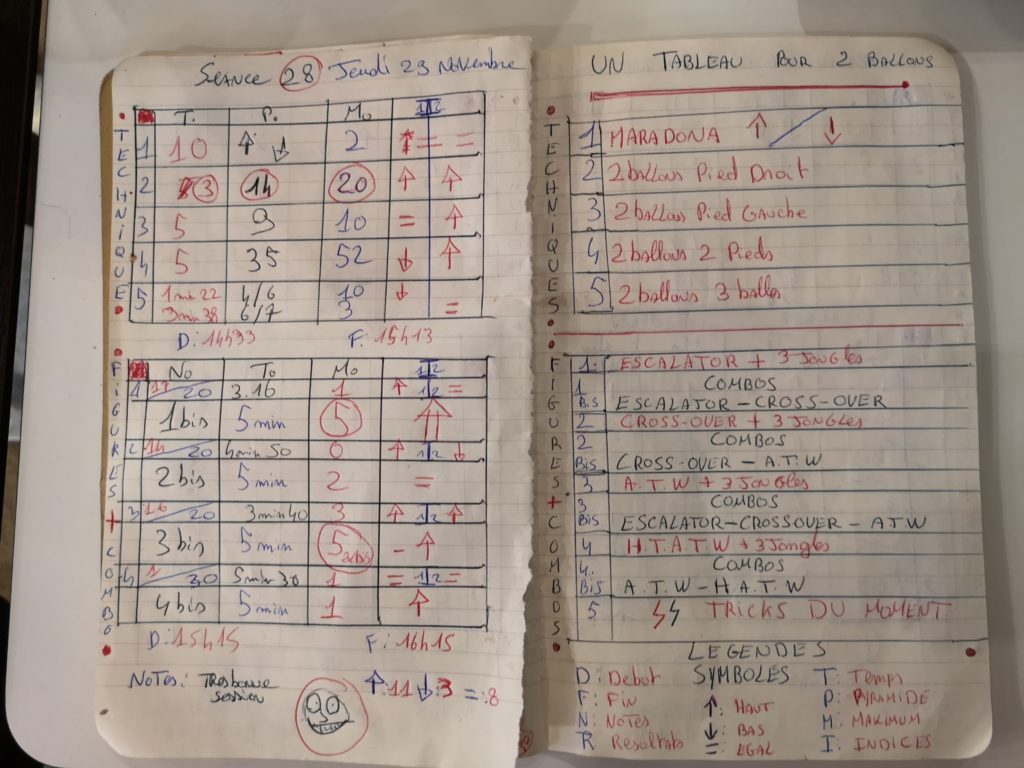 SÉANCE 28 Jeudi 23 Novembre
TECHNIQUE
T. P. Mo 1/2
1 10 ↑ ↓ 2 = =
2 3 14 20 ↑ ↑
3 5 9 10 = ↑
4 5 35 52 ↓ ↑
5 1 min 22 4/6 10 ↓
3 min 38 6/7 3 =
D: 14H33 F: 15H13
FIGURES + COMBO
No To Mo 1/2
1 17/20 3.16 1 ↑ 1/2 =
1 bis 5 min 5 ↑
2 14/20 4 min 50 0 ↑ 1/2 ↓
2 bis 5 min 2 =
3 16/20 3 min 40 3 ↑ 1/2 ↑
3 bis 5 min 5 - ↑
4 1/30 5 min 30 1 = 1/2 =
4 bis 5 min 1 ↑
D: 15H15 F: 16H15
NOTES: Tres bonne
session
↑:11 ↓:3 =:8
UN TABLEAU POUR 2 BALLONS
TECHNIQUES
1 MARADONA ↑ / ↓
2 2 ballons Pied Droit
3 2 ballons Pied Gauche
4 2 ballons 2 Pieds
5 2 ballons 3 balles
FIGURES + COMBOS
1. ESCALATOR + 3 Jongles
1 COMBOS
BIS ESCALATOR-CROSS-OVER
2 CROSS-OVER + 3 JONGLES
2 COMBOS
BIS CROSS-OVER - A.T.W
3 A.T.W + 3 JONGLES
3 COMBOS
BIS ESCALATOR-CROSSOVER - ATW
4 H.T.A.T.W + 3 Jongles
4. COMBOS
BIS A.T.W - H.A.T.W
5 TRICKS DU MOMENT
LEGENDES
D: Debut SYMBOLES T: Temps
F: Fin ↑: HAUT P: PYRAMIDE
N: NOTES ↓: BAS M: MAXIMUM
R Resultats =: EGAL I: INDICES